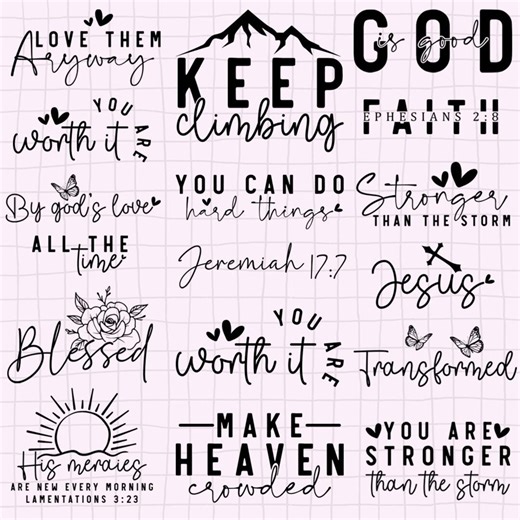 LOVE THEM
Anyway
YOU
worth it
ARE
By god's love
ALL THE
time
Blessed
His meraies
ARE NEW EVERY MORNING
LAMENTATIONS 3:23
KEEP
climbing
YOU CAN DO
hard things
Jeremiah 17:7
YOU
worth it
ARE
MAKE
HEAVEN
crowded
GOD
is good
FAITH
EPHESIANS 2:8
Stronger
THAN THE STORM
Jesus
Transformed
YOU ARE
STRONGER
than the storm